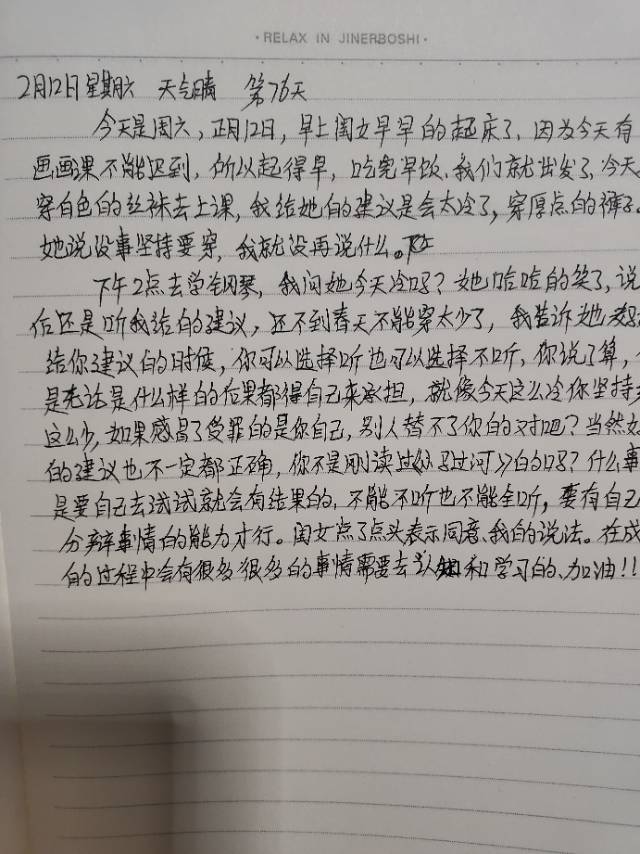 ·RELAX IN JINERBOSHI·
2月12日 星期六 天气晴 第76天
今天是周六，正月12日，早上闺女早早的起床了，因为今天有
画画课不能迟到，所以起得早，吃完早饭、我们就出发了，今天
穿白色的丝袜去上课，我给她的建议是会太冷了，穿厚点的裤子。
她说没事坚持要穿，我就没再说什么。
下午2点去学钢琴，我问她今天冷吗？她哈哈的笑了，说
后还是听我给的建议，还不到春天不能穿太少了，我告诉她
给你建议的时候，你可以选择听也可以选择不听，你说了算，
是无论是什么样的后果都得自己来承担，就像今天这么冷你坚持
这么少，如果感冒了受罪的是你自己，别人替不了你的对吧？当然
的建议也不一定都正确，你不是刚读过《小马过河》的吗？什么事
是要自己去试试就会有结果的，不能不听也不能全听，要有自己
分辨事情的能力才行。闺女点了点头表示同意、我的说法。在成
的过程中会有很多很多的事情需要去认知和学习的、加油！！